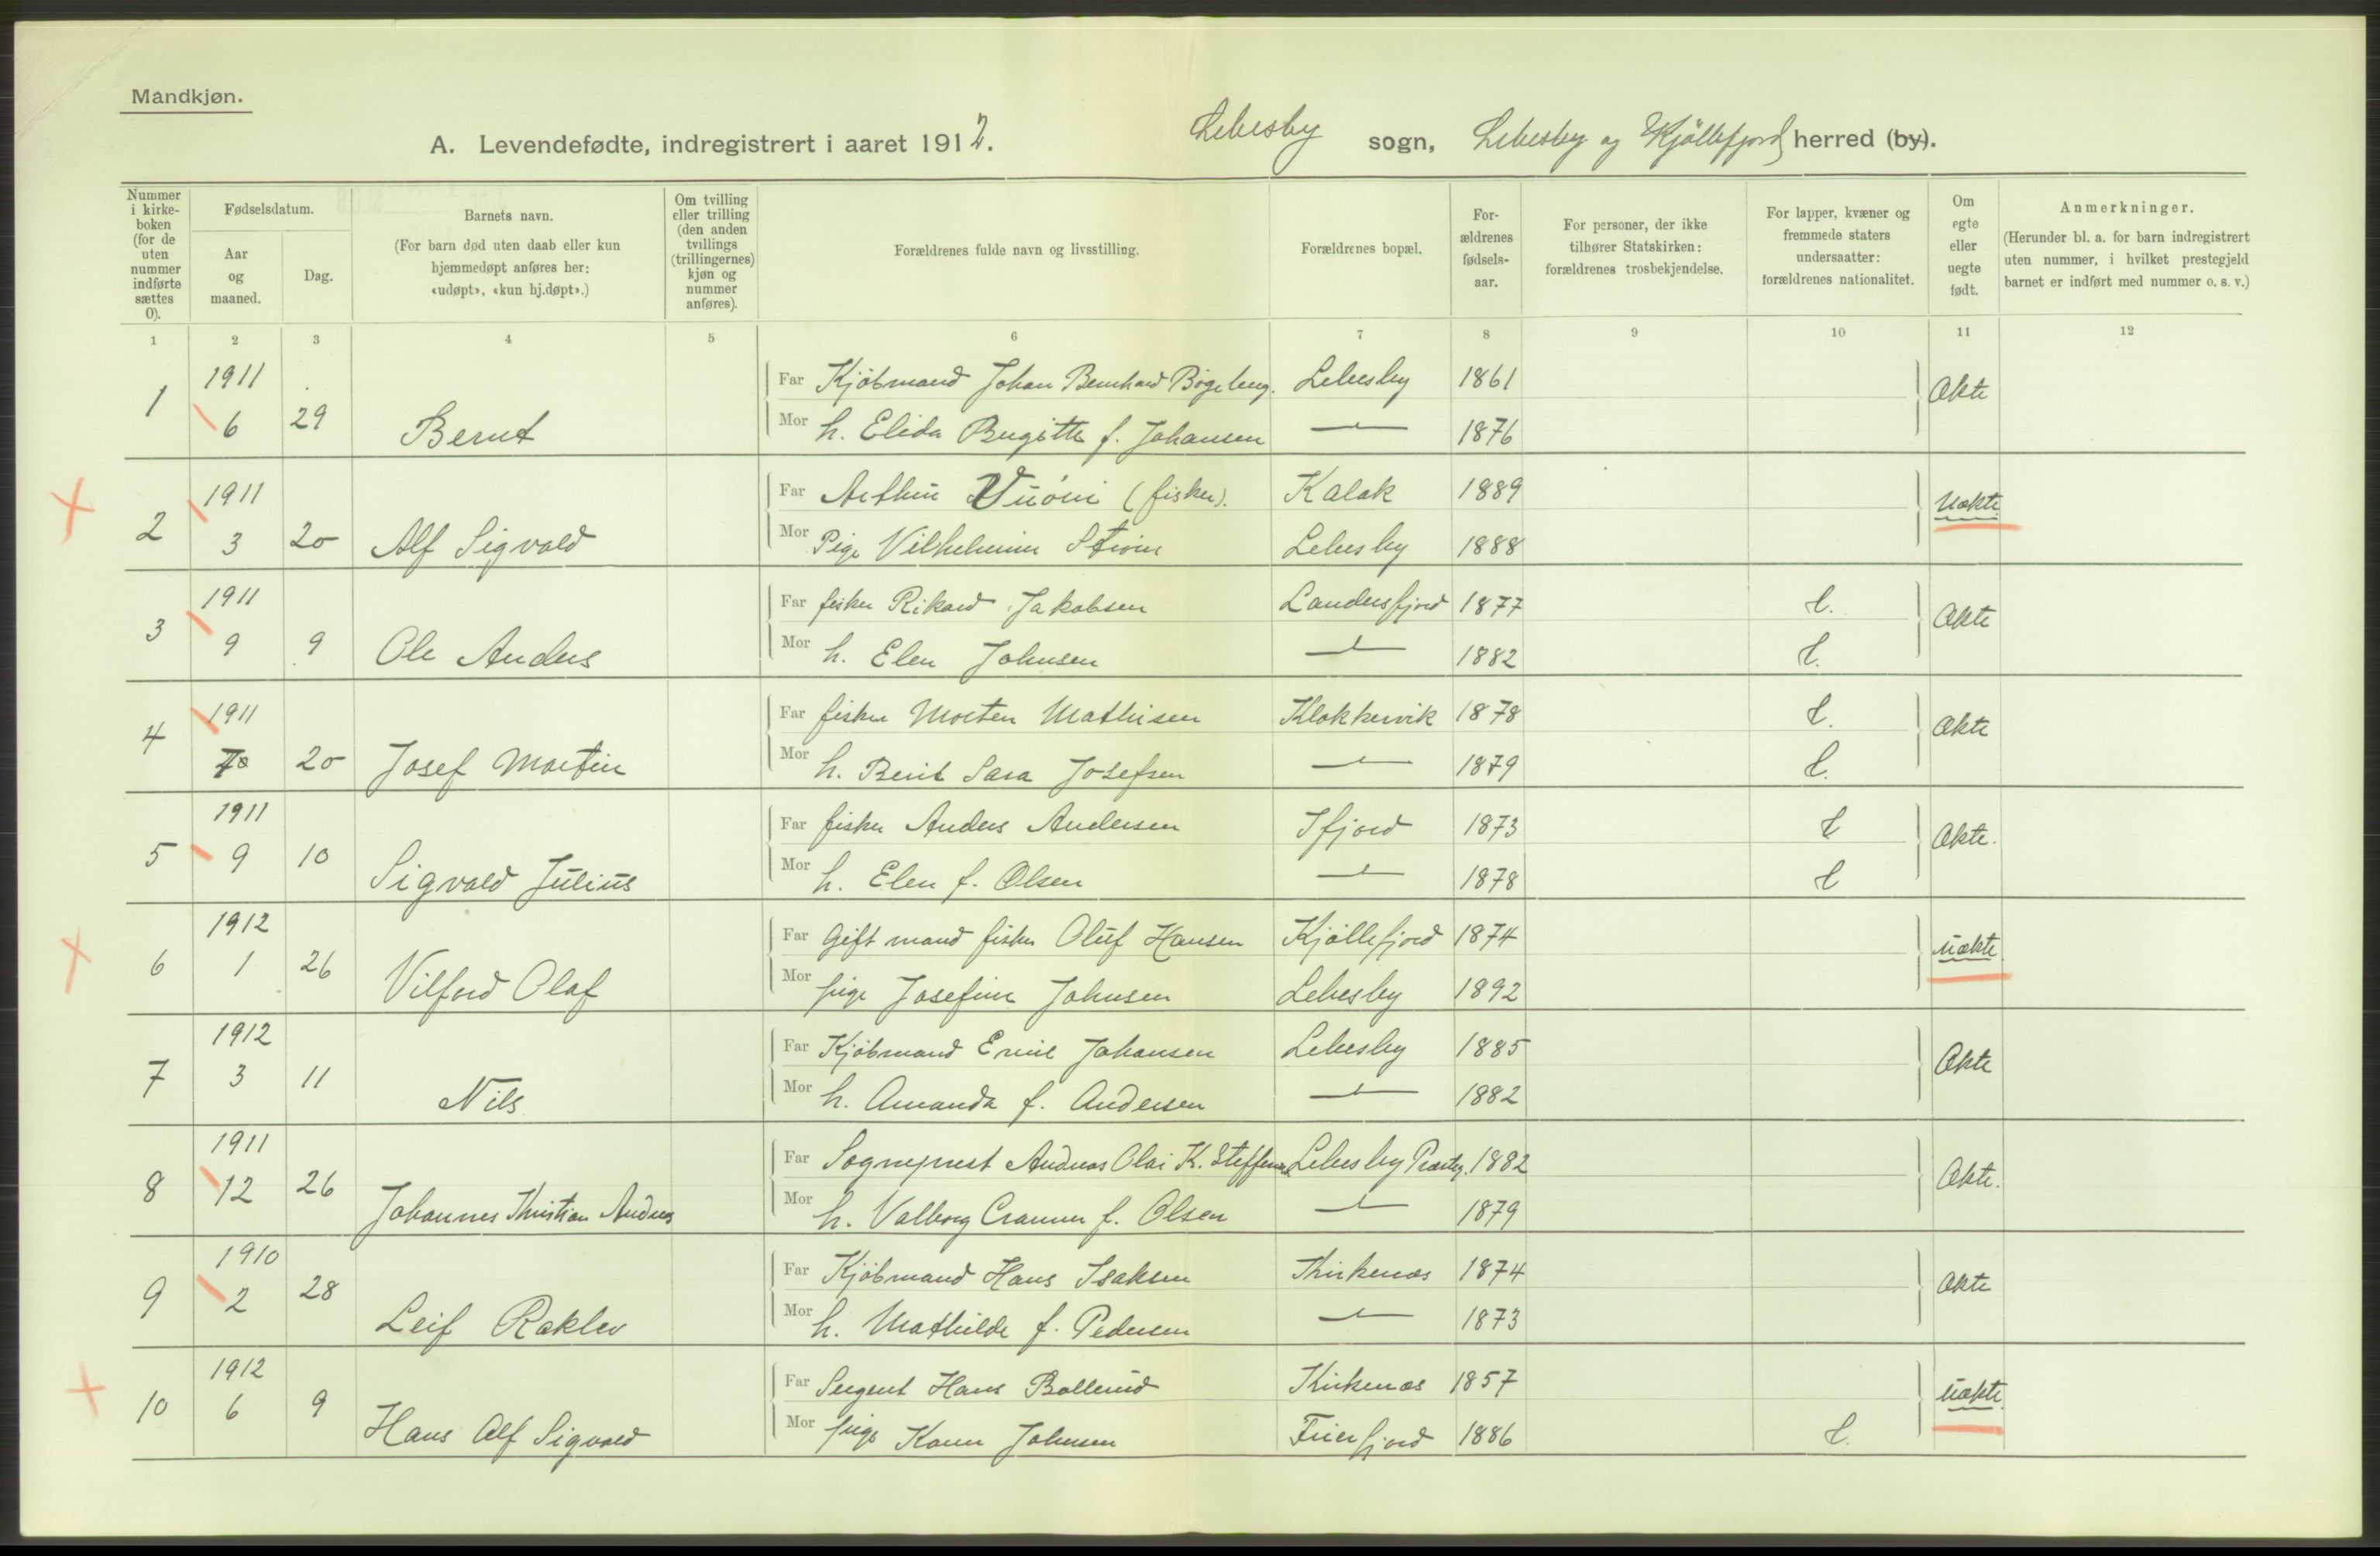 Mandkjøn.
A. Levendefødte, indregistrert i aaret 1912. Lebesby sogn, Lebesby og Kjøllefjord herred (by).
Nummer i kirkeboken (for de uten nummer indførte sættes 0).
Fødselsdatum.
Aar og maaned.
Dag.
Barnets navn.
(For barn død uten daab eller kun hjemmedøpt anføres her: «udøpt», «kun hj.døpt».)
Om tvilling eller trilling (den anden tvillings (trillingernes) kjøn og nummer anføres).
Forældrenes fulde navn og livsstilling.
Forældrenes bopæl.
Forældrenes fødselsaar.
For personer, der ikke tilhører Statskirken: forældrenes trosbekjendelse.
For lapper, kvæner og fremmede staters undersaatter: forældrenes nationalitet.
Om egte eller uegte født.
Anmerkninger.
(Herunder bl. a. for barn indregistrert uten nummer, i hvilket prestegjeld barnet er indført med nummer o. s. v.)
1 2 3 4 5 6 7 8 9 10 11 12
1 1911 6 29 Bernt
Far Kjøbmand Johan Bernhard Bøgeberg. Lebesby 1861 Ækte
Mor h. Elida Birgitte f. Johansen — 1876
2 1911 3 20 Alf Sigvald
Far Arthur (fisker). Kalak 1889 Uækte
Mor Pige Vilhelmine Strøm Lebesby 1888
3 1911 9 9 Ole Anders
Far fisker Rikard Jakobsen Landersfjord 1877 l. Ækte
Mor h. Elen Johnsen — 1882 l.
4 1911 20 Josef Martin
Far fisker Morten Mathisen Klokkervik 1878 l. Ækte
Mor h. Berit Sara Josefsen — 1879 l.
5 1911 9 10 Sigvald Julius
Far fisker Anders Andersen Ifjord 1873 l Ækte.
Mor h. Elen f. Olsen — 1878 l
6 1912 1 26 Vilford Olaf
Far Gift mand fisker Oluf Hansen Kjøllefjord 1874 Uækte
Mor pige Josefine Johnsen Lebesby 1892
7 1912 3 11 Nils
Far Kjøbmand Emil Johansen Lebesby 1885 Ækte
Mor h. Amanda f. Andersen — 1882
8 1911 12 26 Johannes Kristian Andreas
Far Sogneprest Andreas Olai K. Steffensen Lebesby Præsteg. 1882 Ækte.
Mor h. Valborg Cramer f. Olsen — 1879
9 1910 2 28 Leif Raklev
Far Kjøbmand Hans Isaksen Kirkenæs 1874 Ækte
Mor h. Mathilde f. Pedersen — 1873
10 1912 6 9 Hans Alf Sigvald
Far Sergent Hans Kirkenæs 1857 Uækte
Mor pige Karen Johnsen Frierfjord 1886 l.